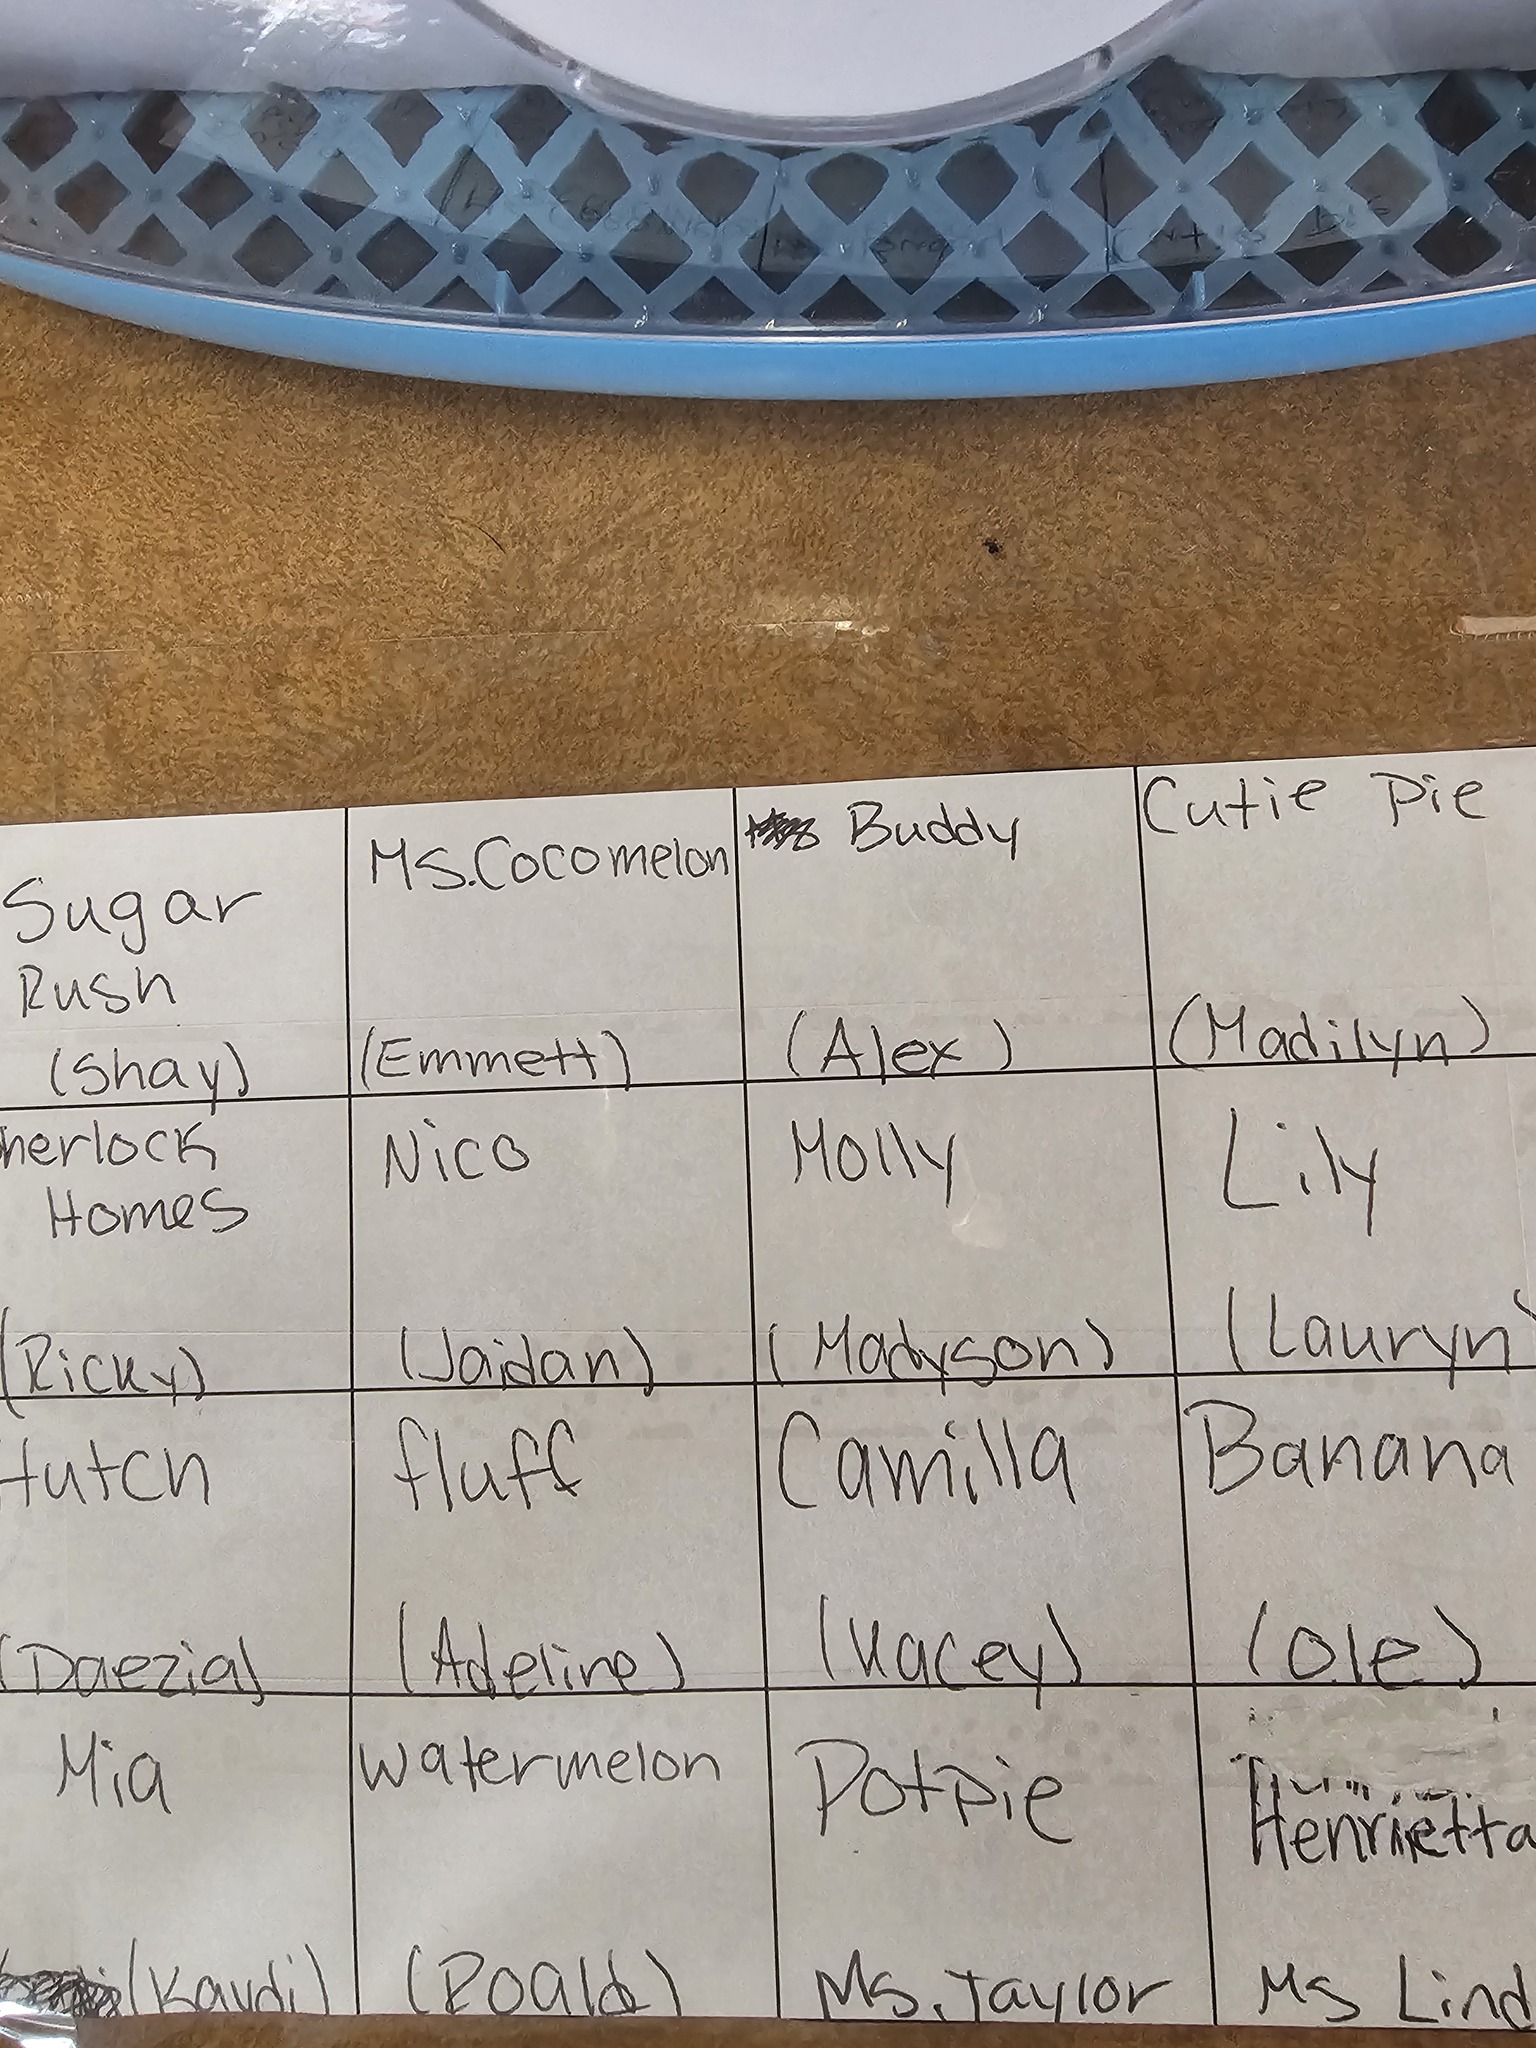 Sugar
Rush
(Shay)
Ms.Cocomelon
(Emmett)
Buddy
(Alex)
Cutie Pie
(Madilyn)
herlock
Homes
(Ricky)
Nico
(Jaidan)
Molly
(Madyson)
Lily
(Lauryn)
Hutch
(Daezia)
fluff
(Adeline)
Camilla
(Kacey)
Banana
(Ole)
Mia
(Kaydi)
watermelon
(Roald)
Potpie
Ms. Taylor
Henrietta
Ms Lind